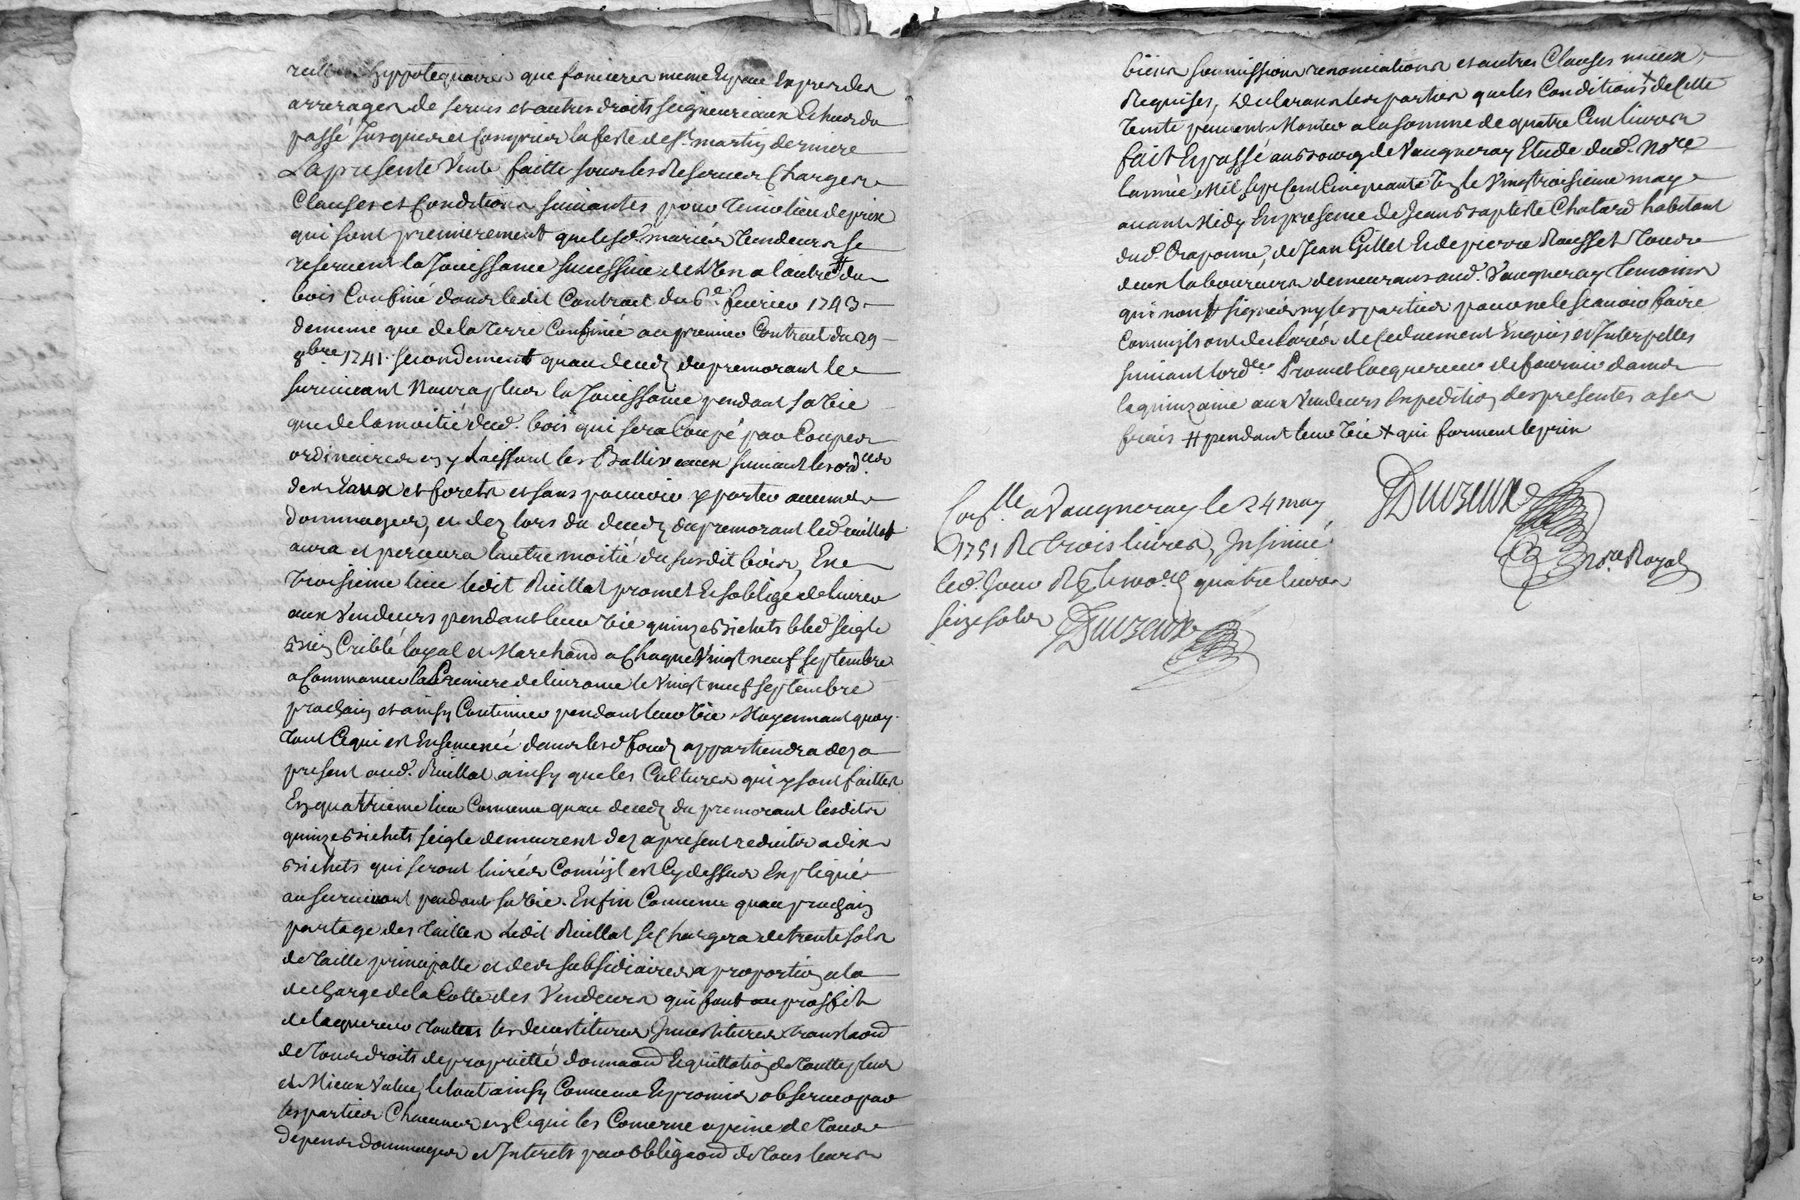 hyppotequaires que foncieres meme Expres des
arrerages de servis et autres droits seigneureaux Echus du
passé Jusques et Compris la feste de St. martin derniere
La presente Vente faitte sous les Reserves Charges
Clauses et Conditions suivantes pour Tenir lieu de prix
qui sont premierement que lesd. mariés Vendeurs se
reservent la Jouissance successive de l'un a l'autre # du
bois Confiné dans ledit Contract du 6e. fevrier 1743
de meme que de la terre Confinée au premier Contract du 29
8bre 1741. secondement quau deces du premorant le
survivant Naura plus la Jouissance pendant sa vie
que de la moitié dud. bois qui sera Coupé par Coupes
ordinaires en y Laissant les Balliveaux suivant les ord.ces
des Eaux et forets et sans pouvoir y porter aucuns
dommages, et dez lors du deces du premorant led. Ruillat
aura et percevra lautre moitié du susdit bois, En
troisieme lieu ledit Ruillat promet Et soblige de livrer
aux Vendeurs pendant leur vie quinze bichets bled seigle
bien Criblé loyal et Marchand a Chaque Vingt neuf septembre
a Commancer la Premiere delivrance le Vingt neuf septembre
prochain et ainsy Continuer pendant leur vie Moyennant quoy
tout Ce qui est Ensemencé dans lesd. fonds appartiendra dez a
present aud. Ruillat ainsy que les Cultures qui y sont faittes
En quatrieme lieu Convenu quau deces du premorant lesdits
quinze bichets seigle demeurent dez apresent reduits a dix
bichets qui seront livrés Comm'il est Cy dessus Expliqué
au survivant pendant sa vie. Enfin Convenu quau prochain
partage des tailles Ledit Ruillat se Chargera de trente sols
de taille principalle et des subsidiaires a proportion a la
decharge de la Cotte des Vendeurs qui font au proffit
de lacquereur toutes les devestitures Investitures translaond
de tous droits de proprietté donnaond Et quittation de toutte plus
et Mieux Value, le tout ainsy Convenu Et promis observer par
les parties Chacunes en Ce qui les Concerne a peine de tous
depens dommages et Interets par obligaond de tous leurs
biens soumissions renonciations et autres Clauses mieux
Requises, Declarans les parties que les Conditions + de Cette
Vente peuvent Monter a la somme de quatre Cent livres
fait Et passé au bourg de Vaugneray Etude dud. Nore
lannée Mil sept Cent Cinquante Un le Vingt troisieme may
avant Midy En presence de Jean baptiste Chatard habitant
dud. Craponne, de Jean Gillet Et de pierre Rousset tous
deux laboureurs demeurans aud. Vaugneray temoins
qui nont signés ny les parties pour ne le scavoir faire
Comm'ils ont declarés de Ce duement Enquis et Interpellés
suivant lord.ce Promet lacquereur de fournir dans
la quinzaine aux Vendeurs Expedition des presentes a ses
frais # pendant leur vie + qui forment le prix
Duvzeux
Nre. Royal
Con.lle a Vaugneray le 24 may
1751 R trois livres, Insinué
led. Jour R quatre livres
seize sols Duvzeux